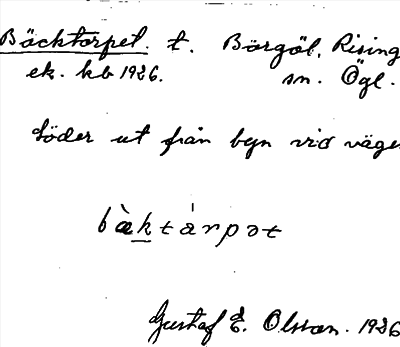 Bäcktorpet. t. Börgöl, Rising
ek. kb 1926. sn. Ögl.
Söder ut från byn vid vägen
bàktárpət
Gustaf E. Olsson. 1926